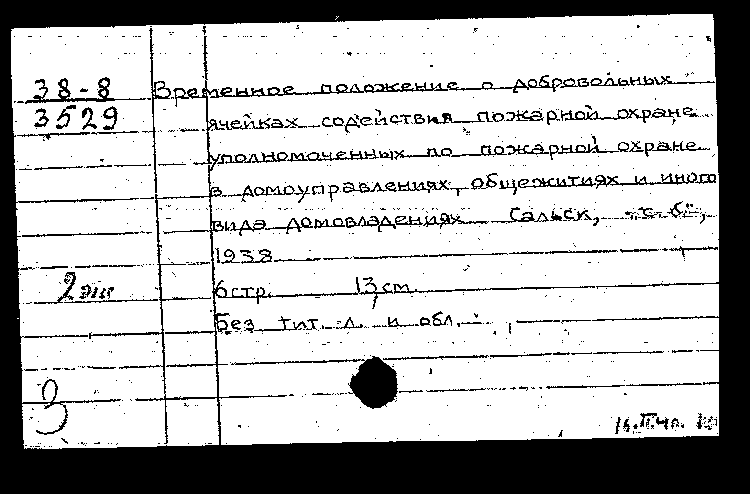 38-8
3529
Временное положение о добровольных
ячейках содействия пожарной охране
уполномоченных по пожарной охране
в домоуправлениях, общежитиях и иного
вида домовладениях Сальск, "с. б.",
1938
2 экз
6 стр. 13 см.
Без тит. л. и обл.
3
16.II.40.